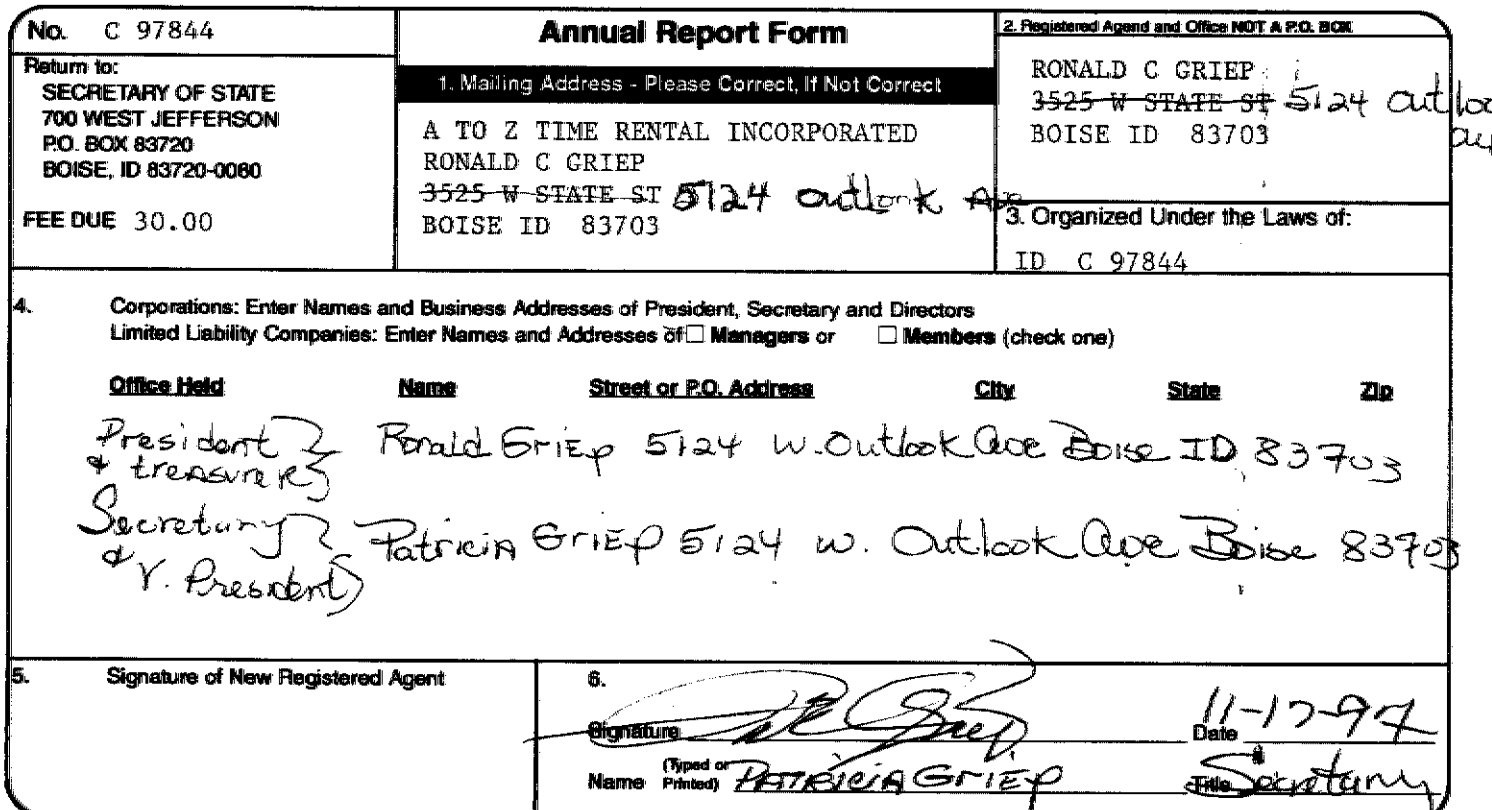 No. C 97844
Return to:
SECRETARY OF STATE
700 WEST JEFFERSON
P.O. BOX 83720
BOISE, ID 83720-0080
FEE DUE 30.00
Annual Report Form
1. Mailing Address - Please Correct, If Not Correct
A TO Z TIME RENTAL INCORPORATED
RONALD C GRIEP
3525 W STATE ST 5124 Outlook Ave
BOISE ID 83703
2. Registered Agend and Office NOT A P.O. BOX
RONALD C GRIEP
3525 W STATE ST 5124
BOISE ID 83703
3. Organized Under the Laws of:
ID C 97844
4. Corporations: Enter Names and Business Addresses of President, Secretary and Directors
Limited Liability Companies: Enter Names and Addresses of □ Managers or □ Members (check one)
Office Held Name Street or P.O. Address City State Zip
President & treasurer Ronald Griep 5124 W. Outlook Ave Boise ID 83703
Secretary & V. President Patricia Griep 5124 W. Outlook Ave Boise 83703
5. Signature of New Registered Agent
6.
Signature Date
Name (Typed or Printed) Patricia Griep Title Secretary